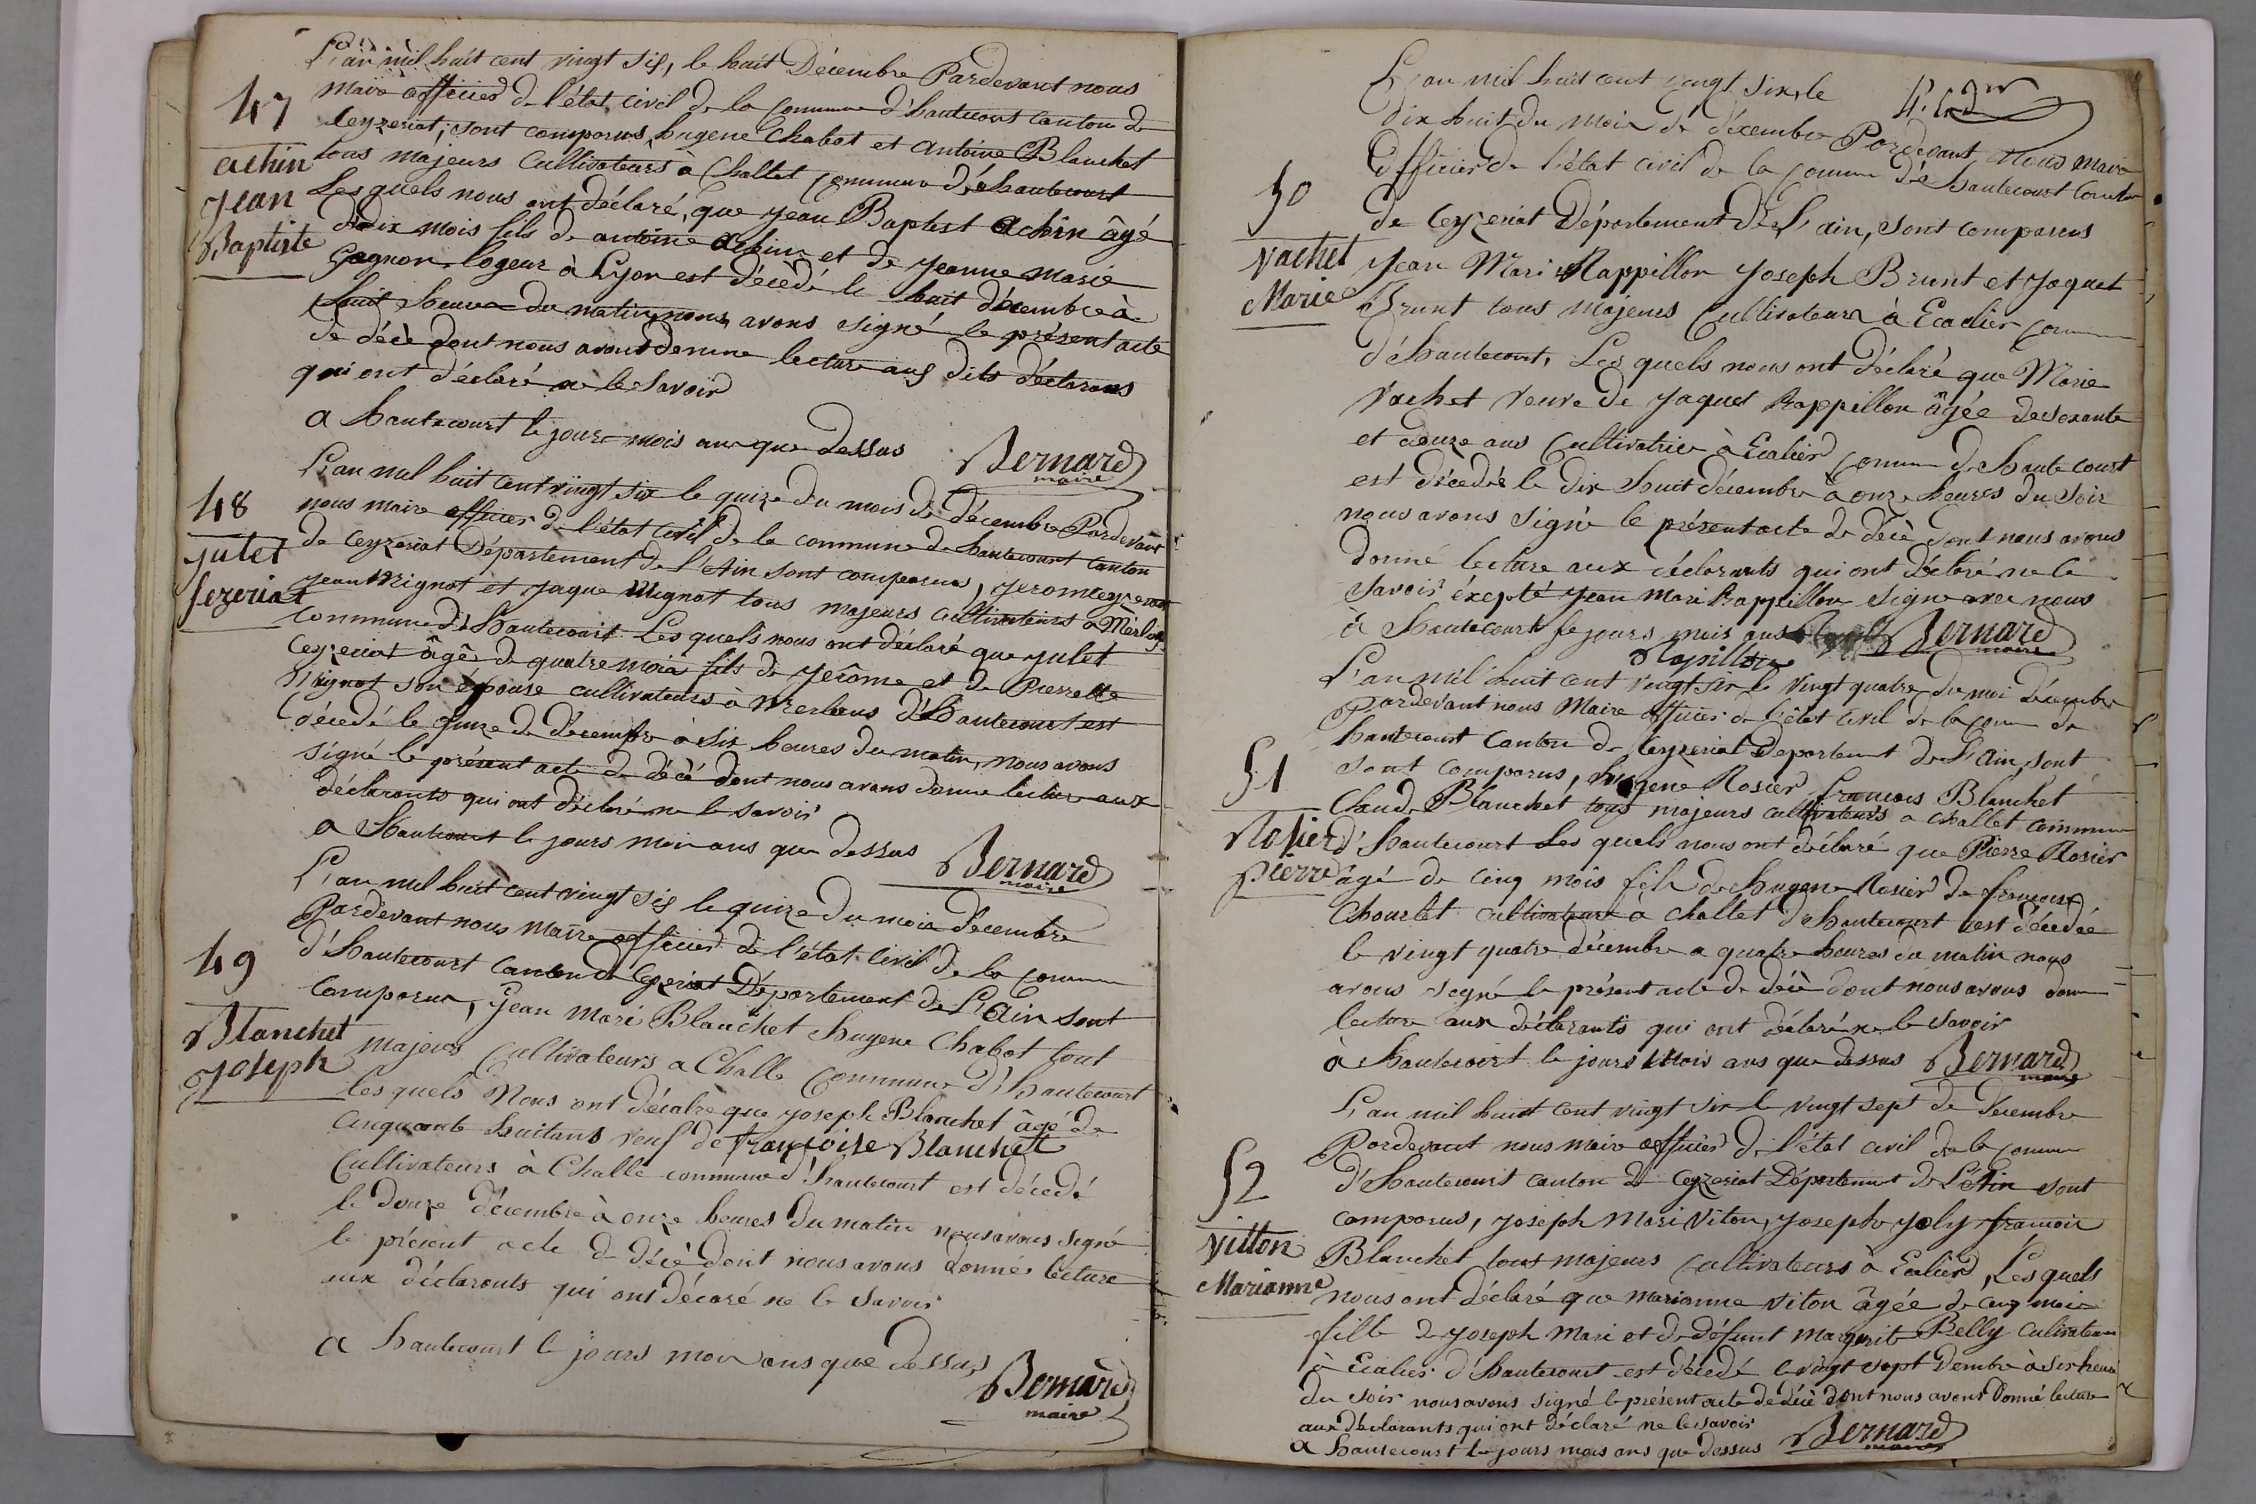 L'an mil huit cent vingt six, le huit Décembre Pardevant nous
47
maire officier de l'état civil de la commune d'hautecourt canton de
Ceyzeriat; sont comparus, hugene Chabot et antoine Blanchet
achin
tous majeurs Cultivateurs à Challet commune d'hautecourt
Jean
Lesquels nous ont déclaré, que jean Baptist achin âgé
Baptiste
de dix mois fils de antoine achin et de jeanne marie
Gagnon logeur à Lyon est décédé le huit décembre à
huit heures du matin, nous avons signé le présent acte
de décè dont nous avons donnne lecture aux dits déclarans
qui ont déclaré ne le Savoir
a hautecourt le jours mois ans que dessus
Bernard
maire
L'an mil huit cent vingt six le quize du mois de décembre Pardevant
48
nous maire officier de l'état civil de la commune de hautecourt canton
julet
de Ceyzeriat Département de l'Ain sont comparus, jerom ceyzeriat
sezeriat
jean Mignot et jaque Mignot tous majeurs cultivateurs a Merlou
Commune d'hautecourt Lesquels nous ont déclaré que julet
Ceyzeriat âgé de quatre mois fils de jerôme et de Pierrette
Mignot son épouse cultivateurs à Merlous d'hautecourt est
décedé le quize de décembre à six heures du matin, nous avons
signé le présent acte de décè dont nous avons donne lecture aux
déclarants qui ont déclaré ne le savoir
a hautecourt le jours mois ans que dessus
Bernard
maire
L'an mil huit cent vingt six le quize du mois décembre
Pardevant nous maire officier de l'état civil de la commune
49
d'hautecourt canton de Ceyzeriat Département de L'Ain sont
comparus, jean Mari Blanchet hugene Chabot tout
Blanchet
majeurs cultivateurs a Challe commune d'hautecourt
joseph
lesquels Nous ont décalré que joseph Blanchet âgé de
cinquante huitans veuf de françoise Blanchet
Cultivateurs à Challe commune d'hautecourt est décedé
le douze décembre à onze heures du matin nous avons signé
le présent acte de décè dont nous avons donné lecture
aux déclarants qui ont décaré ne le savoir
a hautecourt le jours mois ans que dessus
Bernard
maire
L'an mil huit cent vingt six le
dix huit du mois de décembre Pardevant Nous maire
Officier de l'état civil de la commune de hautecourt canton
50
de Ceyzeriat Département De L'ain, sont comparus
Vachet
jean Mari Rappillon joseph Brunt et jaquet
Marie
Brunt tous majeurs Cultivateurs à Ecalier commune
d'hautecourt, Lesquels nous ont déclaré que Marie
Vachet veuve de jaquet Rappillon âgée de soxante
et douze ans Cultivatrice à Ecalier commune de hautecourt
est décedée le dix huit décembre à onze heures du soir
nous avons signé le présent acte de décè dont nous avons
donné lecture aux déclarants qui ont déclaré ne le
savoir éxcpté jean mari Rappillon signe avec nous
à hautecourt le jours mois ans
Bernard
maire
Rapillon
L'an mil huit cent vingt six le vingt quatre du moi décembre
Pardevant nous Maire officier de l'état civil de la comm de
hautecourt canton de Ceyzeriat Département de L'ain, sont
51
sont comparus, hugene Rosier françois Blanchet
Claude Blanchet tous majeurs cultivateurs a Challet commune
Rosier
d'hautecourt Les quels nous ont déclaré que Pierre Rosier
pierre
âgé de cinq mois fils de hugene Rosier de françoise
Chourlet cultivateurs à Challet d'hautecourt est décedé
le vingt quatre décembre a quatre heures du matin nous
avons segné le présent acte de décè dont nous avons donn
lecture aux déclarants qui ont déclaré ne le savoir
à hautecourt le jours mois ans que dessus
Bernard
maire
L'an mil huit cent vingt six le vingt sept de décembre
Pardevant nous maire officier de l'état civil de la commune
52
d'hautecourt canton de Ceyzeriat Département de L'Ain sont
comparus, joseph Mari Viton, joseph joly françois
Vitton
Blanchet tous majeurs cultivateurs à Ecalier, Les quels
Marianne
nous ont déclaré que marianne viton âgée de cinq mois
fille de joseph Mari et de défunt margerit Belly cultivateurs
à Ecalier d'hautecourt est décedé le vingt sept dembre à six heures
du soir nous avons signé le présent acte de décè dont nous avons donné lecture
aux déclarants qui ont déclaré ne le savoir
a hautecourt le jours mois ans que dessus
Bernard
maire